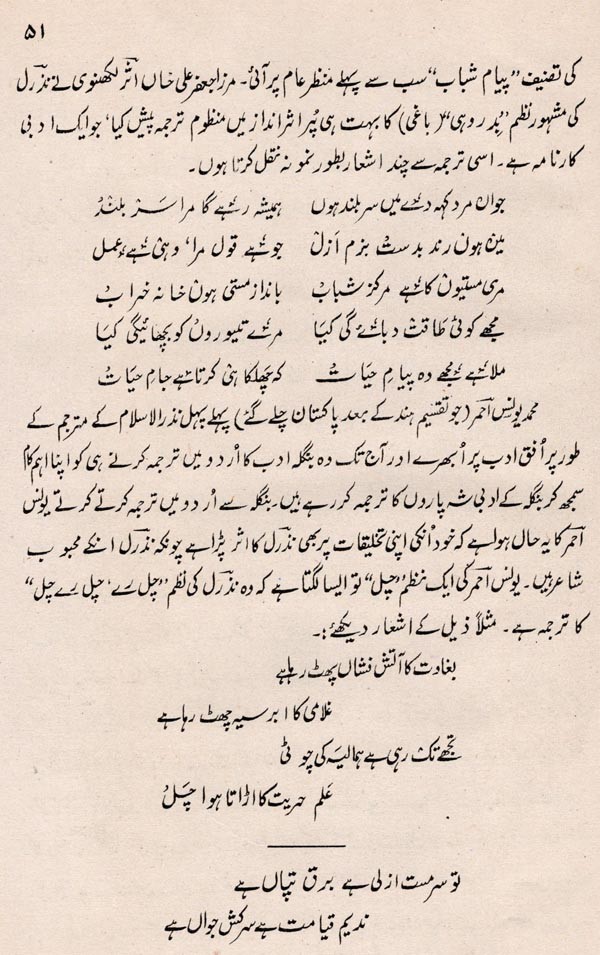 ۵۱
کی تصنیف ”پیام شباب“ سب سے پہلے منظر عام پر آئی۔ مرزا جعفر علی خاں اثر لکھنوی نے نذرل
کی مشہور نظم ”بدروہی“ (باغی) کا بہت ہی پُر اثر انداز میں منظوم ترجمہ پیش کیا‘ جو ایک ادبی
کارنامہ ہے۔ اسی ترجمہ سے چند اشعار بطور نمونہ نقل کرتا ہوں۔
جواں مرد کہہ دے میں سر بلند ہوں ہمیشہ رہے گا مرا سر بلند
میں ہوں رند بدمست بزم ازل جو ہے قول مرا، وہی ہے عمل
مری مستیوں کا ہے مرکز شباب بانداز مستی ہوں خانہ خراب
مجھے کوئی طاقت دبائے گی کیا مرے تیوروں کو بجھائیگی کیا
ملا ہے مجھے وہ پیام حیات کہ چھلکا ہی کرتا ہے جام حیات
محمد یونس احمر (جو تقسیم ہند کے بعد پاکستان چلے گئے) پہلے پہل نذر الاسلام کے مترجم کے
طور پر اُفق ادب پر اُبھرے اور آج تک وہ بنگلہ ادب کا اُردو میں ترجمہ کرنے ہی کو اپنا اہم کام
سمجھ کر بنگلہ کے ادبی شہ پاروں کا ترجمہ کر رہے ہیں۔ بنگلہ سے اُردو میں ترجمہ کرتے کرتے یونس
احمر کا یہ حال ہوا ہے کہ خود اُنکی اپنی تخلیقات پر بھی نذرل کا اثر پڑا ہے چونکہ نذرل انکے محبوب
شاعر ہیں۔ یونس احمر کی ایک نظم ”چل“ تو ایسا لگتا ہے کہ وہ نذرل کی نظم ”چل رے‘ چل رے چل“
کا ترجمہ ہے۔ مثلاً ذیل کے اشعار دیکھئے :۔
بغاوت کا آتش فشاں پھٹ رہا ہے
غلامی کا ابر سیہ چھٹ رہا ہے
تجھے تک رہی ہے ہمالیہ کی چوٹی
عَلم حریت کا اڑاتا ہوا چَل
تو سرمست ازلی ہے برق تپاں ہے
ندیم قیامت ہے سرکش جواں ہے